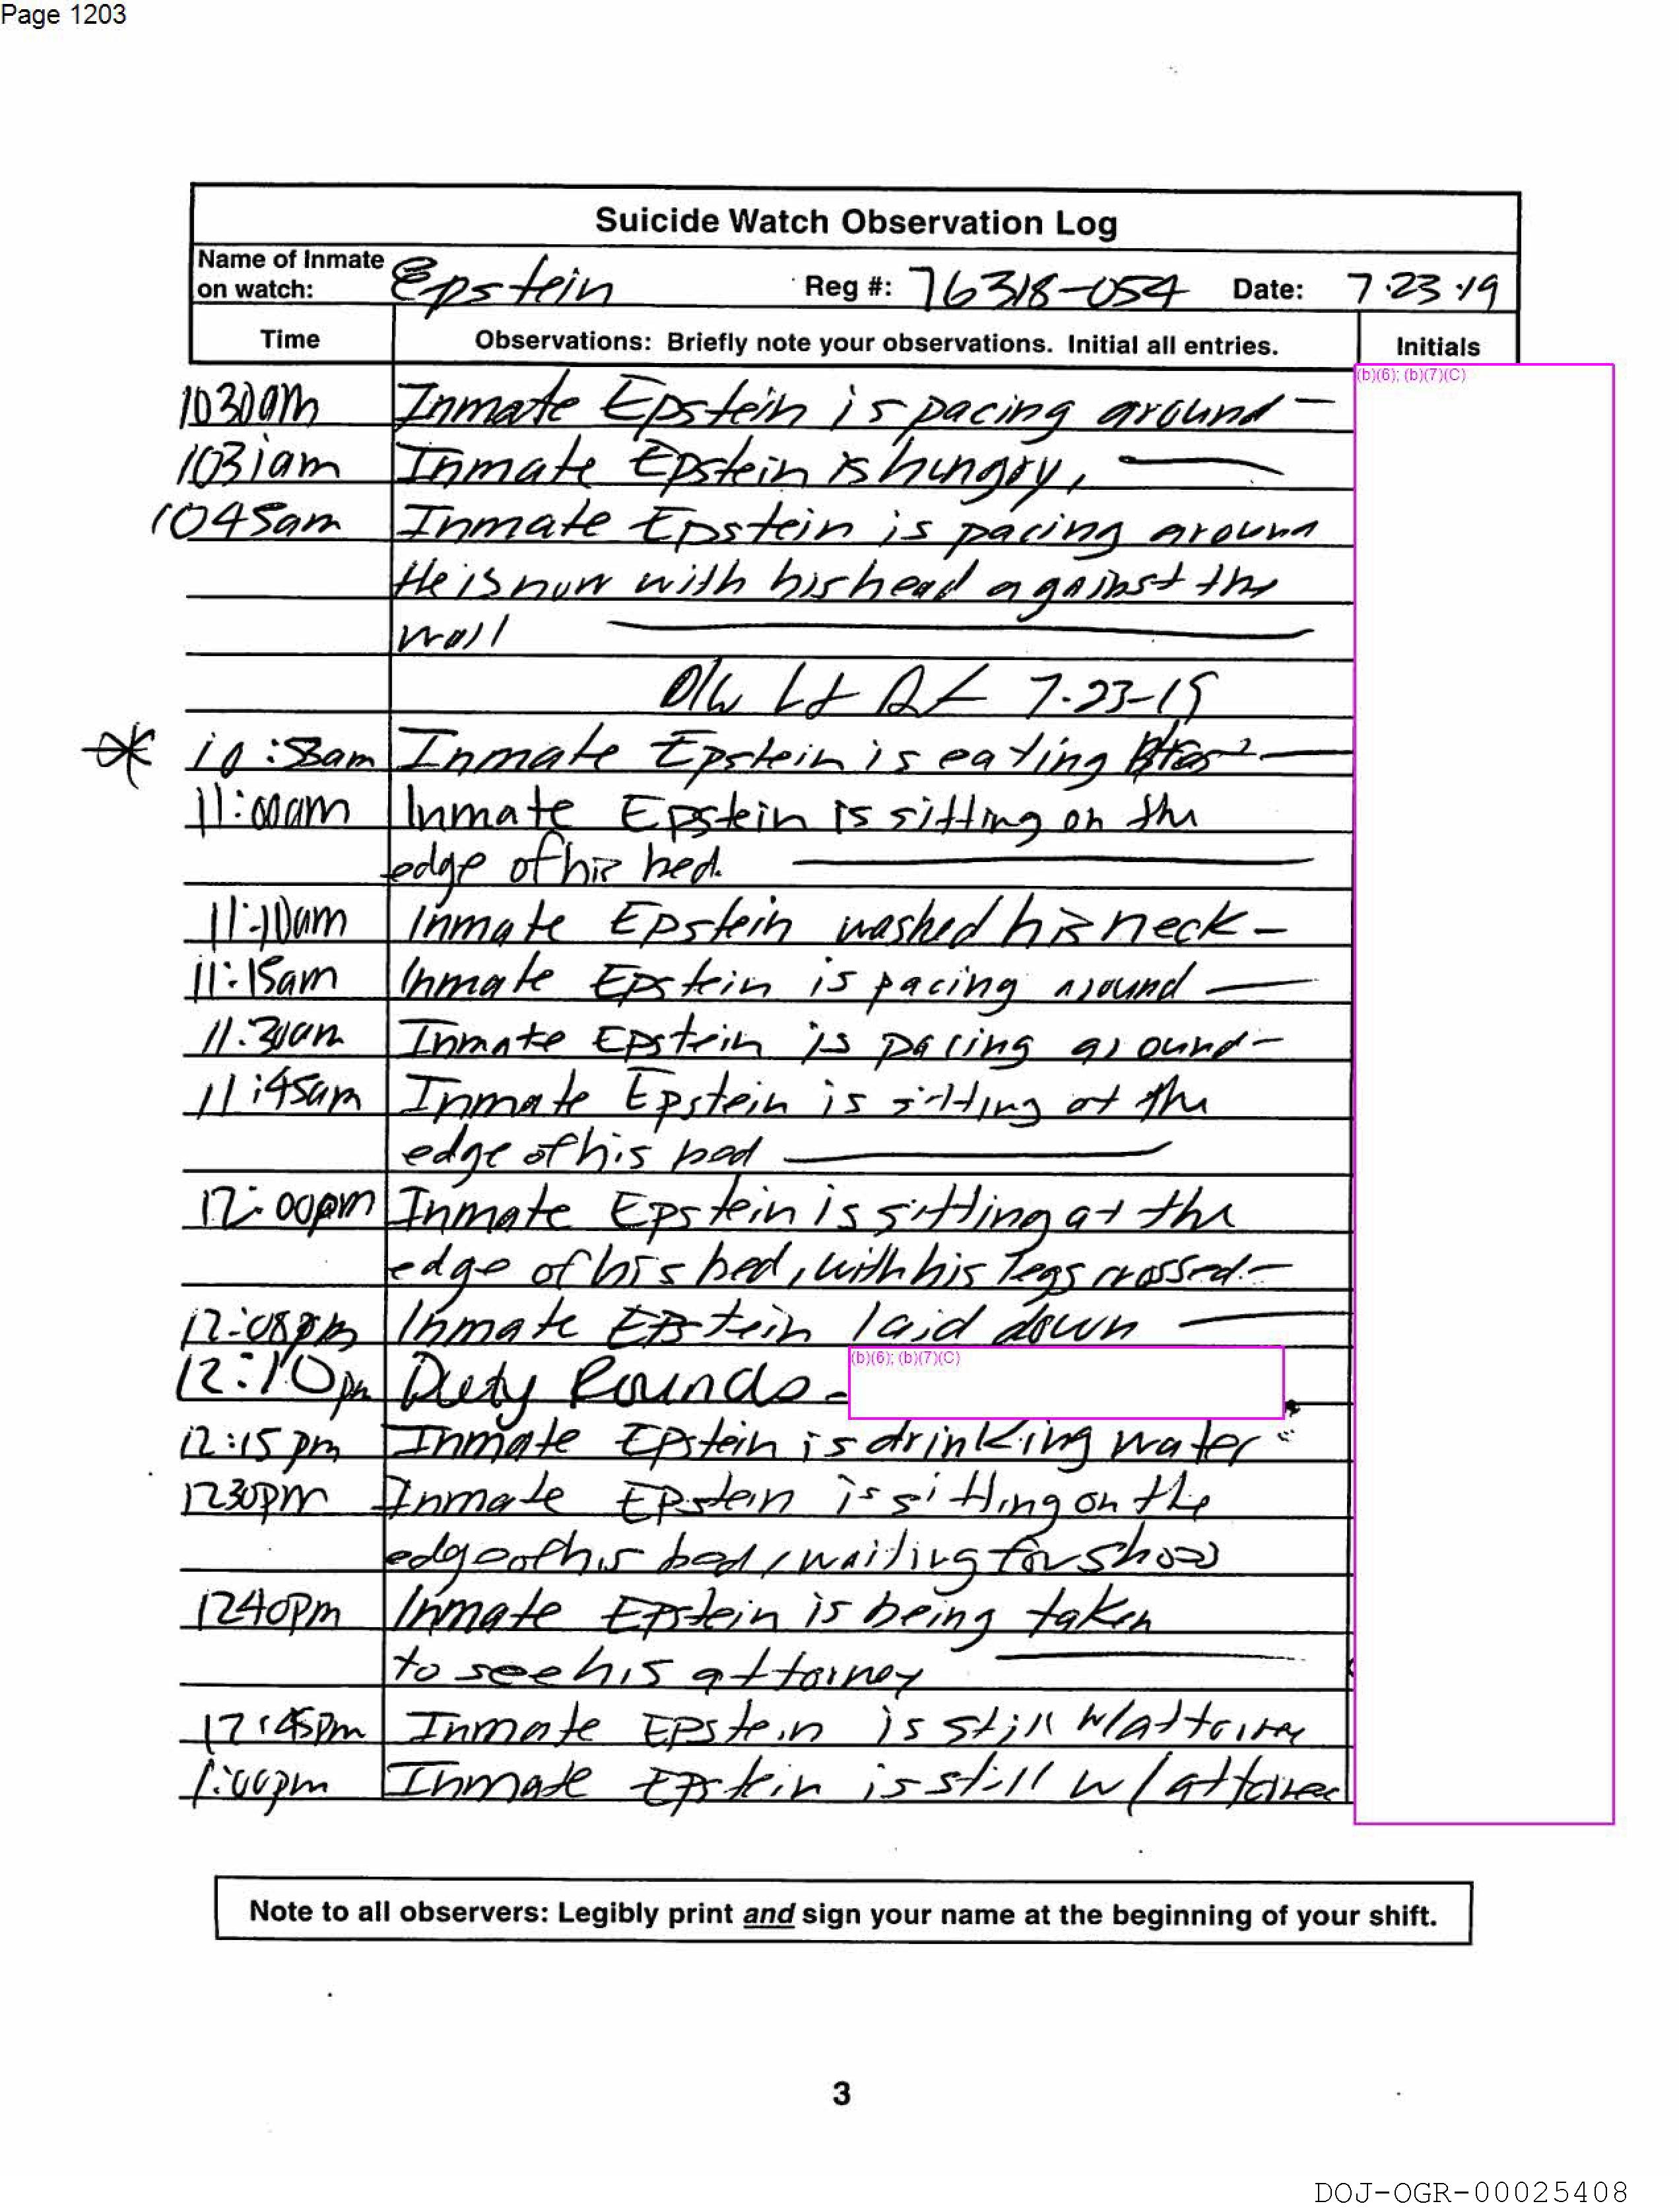 Page 1203
Suicide Watch Observation Log
Name of Inmate on watch: Epstein Reg #: 76318-054 Date: 7-23-19
Time Observations: Briefly note your observations. Initial all entries. Initials
(b)(6); (b)(7)(C)
1030am Inmate Epstein is pacing around -
1031am Inmate Epstein is hungry,
1045am Inmate Epstein is pacing around
He is now with his head against the
wall
Lt 7-23-19
Inmate Epstein is eating
11:00am Inmate Epstein is sitting on the
edge of his bed.
11:10am Inmate Epstein washed his neck -
11:15am Inmate Epstein is pacing around
11:30am Inmate Epstein is pacing around -
11:45am Inmate Epstein is sitting at the
edge of his bed
12:00pm Inmate Epstein is sitting at the
edge of his bed, with his legs crossed. -
12:08pm Inmate Epstein laid down
12:10pm Duty Rounds - (b)(6); (b)(7)(C)
12:15pm Inmate Epstein is drinking water
1230pm Inmate Epstein is sitting on the
edge of his bed, waiting for
1240pm Inmate Epstein is being taken
to see his attorney
12:45pm Inmate Epstein is still w/attorney
1:00pm Inmate Epstein is still w/attorney
Note to all observers: Legibly print and sign your name at the beginning of your shift.
3
DOJ-OGR-00025408